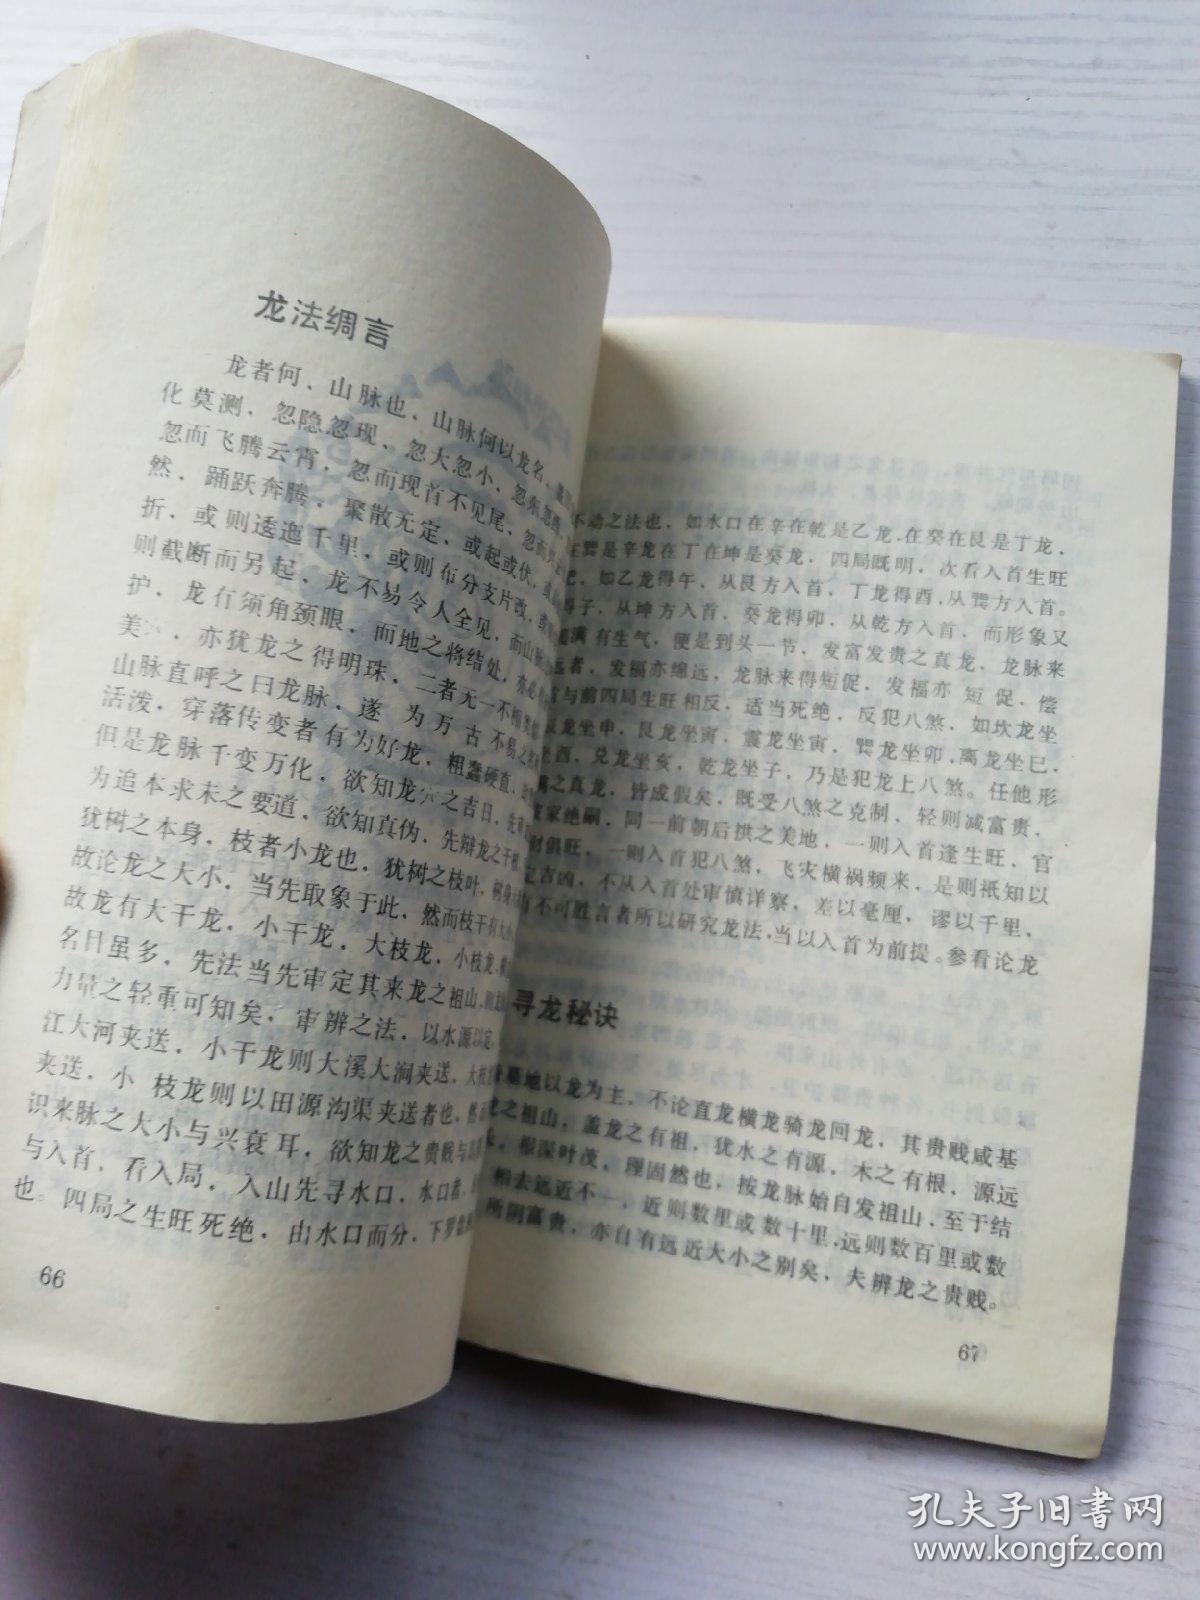 龙法绸言
龙者何，山脉也，山脉何以龙名，
化莫测，忽隐忽现，忽大忽小，忽东忽西
忽而飞腾云宵，忽而现首不见尾，忽而
然，踊跃奔腾，聚散无定，或起或伏，或
折，或则逶迤千里，或则布分支片改，或
则截断而另起，龙不易令人全见，而山脉
护，龙有须角颈眼，而地之将结处，亦必
美，亦犹龙之得明珠，二者无一不相类
山脉直呼之曰龙脉，遂为万古不易之
活泼，穿落传变者有为好龙，粗蠢硬直，
但是龙脉千变万化，欲知龙之吉日，先审
为追本求末之要道，欲知真伪，先辩龙之干枝
犹树之本身，枝者小龙也，犹树之枝叶，树身
故论龙之大小，当先取象于此，然而枝干有大小
故龙有大干龙，小干龙，大枝龙，小枝龙，
名日虽多，先法当先审定其来龙之祖山，则
力量之轻重可知矣，审辨之法，以水源以定，
江大河夹送，小干龙则大溪大涧夹送，大枝
夹送，小枝龙则以田源沟渠夹送者也，然
识来脉之大小与兴衰耳，欲知龙之贵贱与
与入首，看入局，入山先寻水口，水口者，
也。四局之生旺死绝，由水口而分，下罗
66
不动之法也，如水口在辛在乾是乙龙，在癸在艮是丁龙，
在巽是辛龙在丁在坤是癸龙，四局既明，次看入首生旺
，如乙龙得午，从艮方入首，丁龙得酉，从巽方入首。
得子，从坤方入首，癸龙得卯，从乾方入首，而形象又
满有生气，便是到头一节，发富发贵之真龙，龙脉来
远者，发福亦绵远，龙脉来得短促，发福亦短促，偿
与前四局生旺相反，适当死绝，反犯八煞，如坎龙坐
龙坐申，艮龙坐寅，震龙坐寅，巽龙坐卯，离龙坐巳，
酉，兑龙坐亥，乾龙坐子，乃是犯龙上八煞。任他形
之真龙，皆成假矣，既受八煞之克制，轻则减富贵，
家绝嗣，同一前朝后拱之美地，一则入首逢生旺，官
俱旺，一则入首犯八煞，飞灾横祸频来，是则祇知以
吉凶，不从入首处审慎详察，差以毫厘，谬以千里，
有不可胜言者所以研究龙法，当以入首为前提。参看论龙
寻龙秘诀
墓地以龙为主，不论直龙横龙骑龙回龙，其贵贱咸基
龙之祖山，盖龙之有祖，犹水之有源，木之有根，源远
，根深叶茂，理固然也，按龙脉始自发祖山，至于结
相去远近不一，近则数里或数十里，远则数百里或数
所阴富贵，亦自有远近大小之别矣，夫辨龙之贵贱。
67
孔夫子旧书网
www.kongfz.com